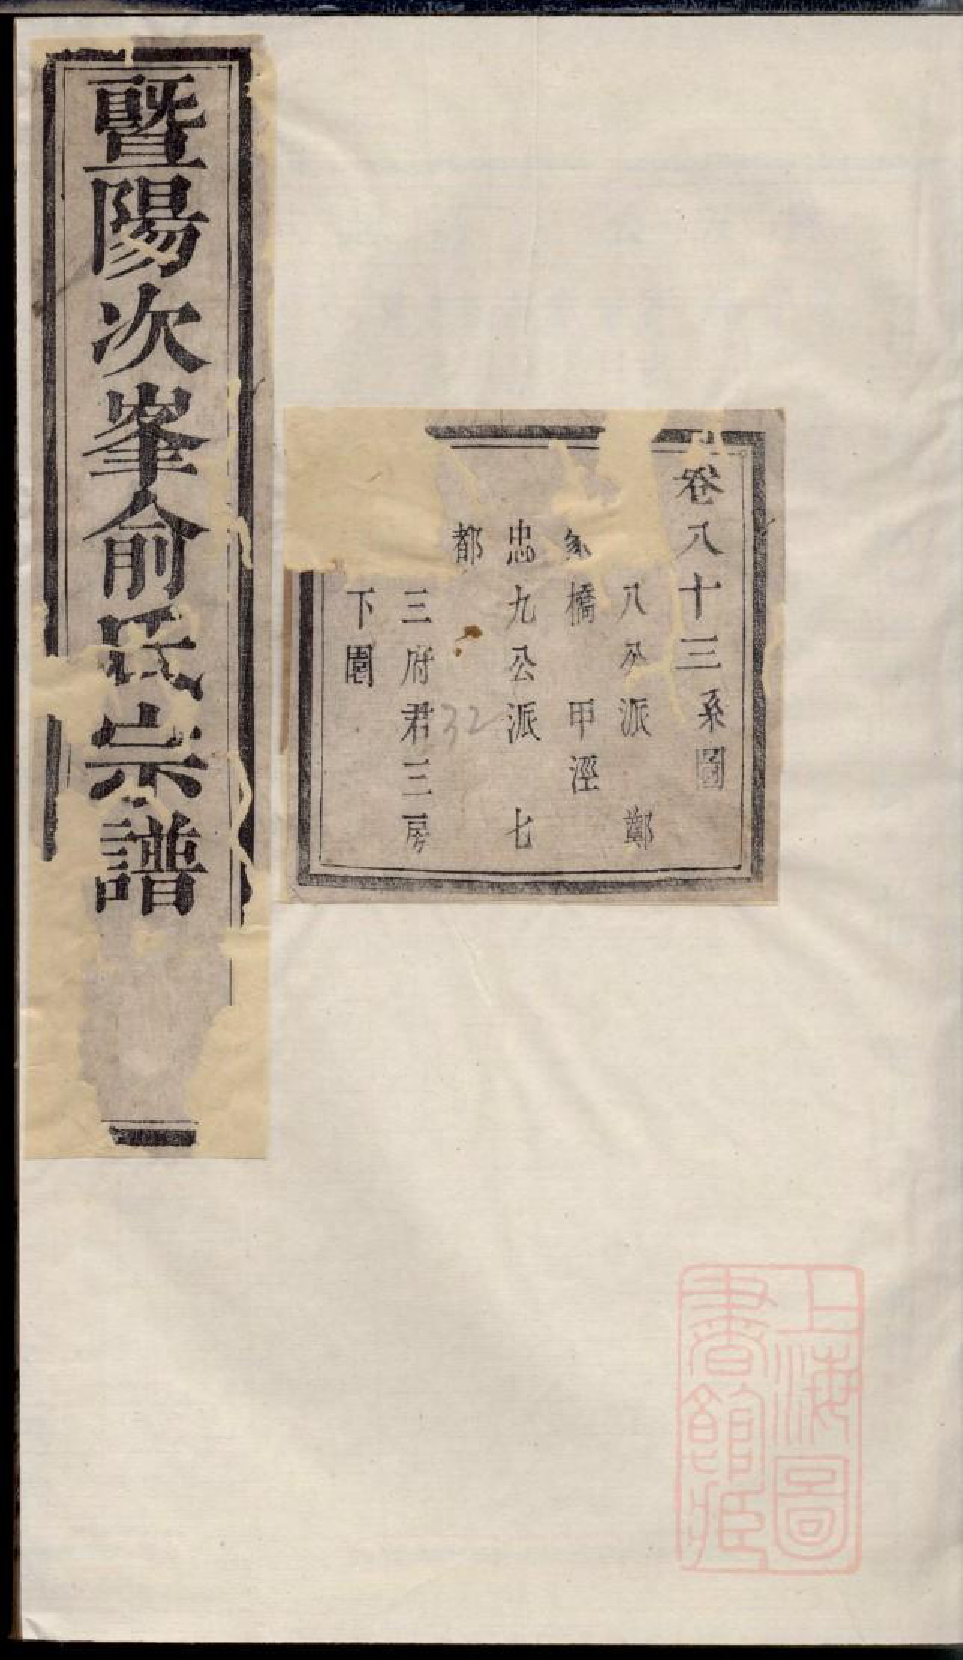 暨陽次峯俞氏宗譜
卷八十三系圖
八公派 鄭
橋 甲涇
忠九公派 七
都
三府君三房
下園
32
上海圖
書館藏